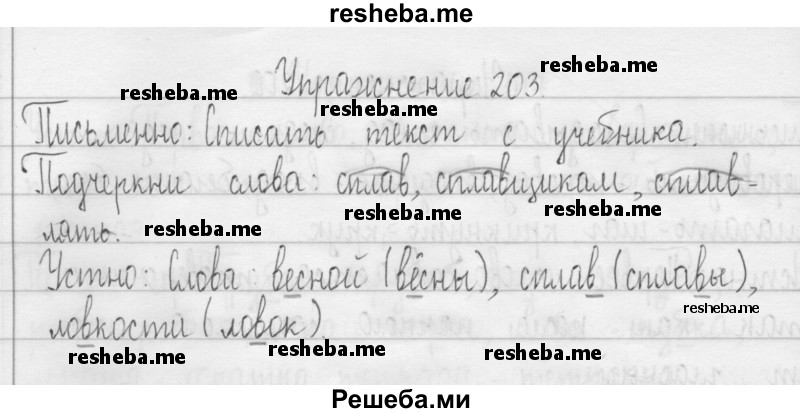 resheba.me
Упражнение 203.
resheba.me
resheba.me
resheba.me
Письменно: Списать текст с учебника.
Подчеркни слова: сплав, сплавщикам, сплав-
resheba.me
resheba.me
resheba.me
лять.
resheba.me
resheba.me
Устно: Слова весной (вёсны), сплав (сплавы),
resheba.me
ловкости (ловок)
resheba.me
resheba.me
resheba.me
Решеба.ми